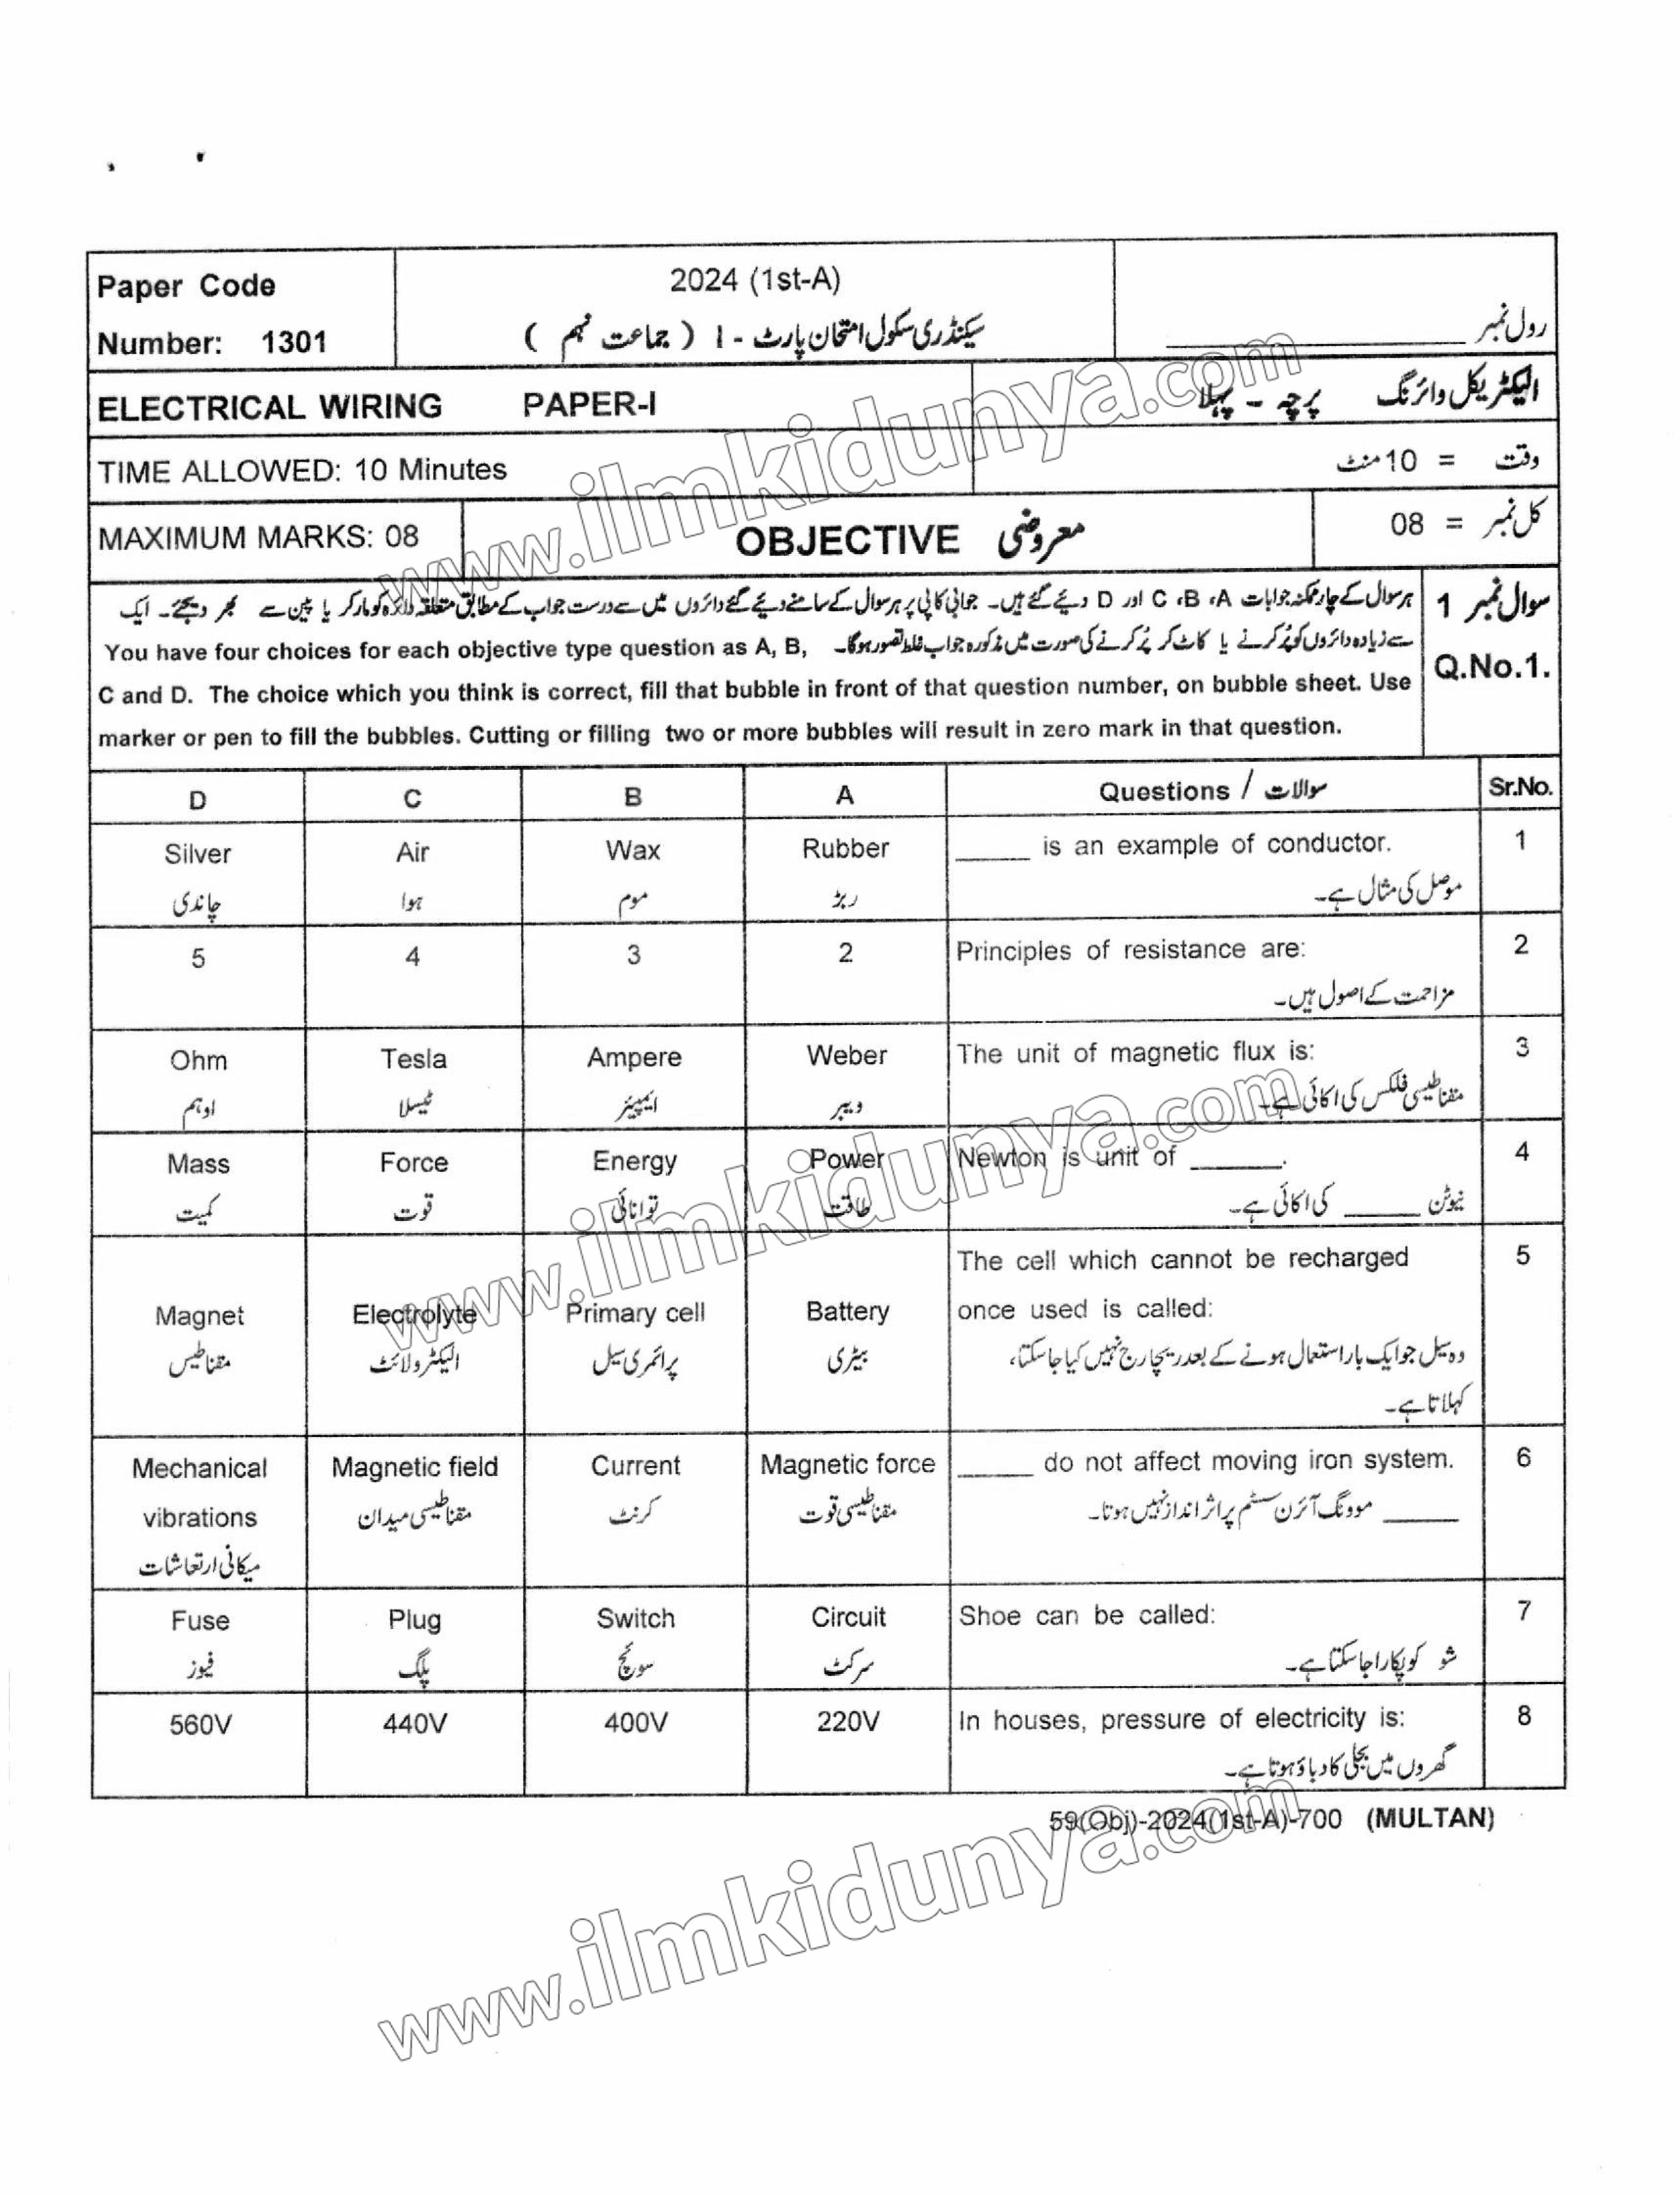 Paper Code
Number: 1301
2024 (1st-A)
سیکنڈری سکول امتحان پارٹ - I ( جماعت نہم )
رول نمبر ____________
ELECTRICAL WIRING PAPER-I
الیکٹریکل وائرنگ پرچہ - پہلا
TIME ALLOWED: 10 Minutes
وقت = 10 منٹ
MAXIMUM MARKS: 08
OBJECTIVE معروضی
کل نمبر = 08
سوال نمبر 1
Q.No.1.
ہر سوال کے چار ممکنہ جوابات A، B، C اور D دیئے گئے ہیں۔ جوابی کاپی پر ہر سوال کے سامنے دیئے گئے دائروں میں سے درست جواب کے مطابق متعلقہ دائرہ کو مارکر یا پین سے بھر دیجئے۔ ایک
سے زیادہ دائروں کو پُر کرنے یا کاٹ کر پُر کرنے کی صورت میں مذکورہ جواب غلط تصور ہوگا۔ You have four choices for each objective type question as A, B,
C and D. The choice which you think is correct, fill that bubble in front of that question number, on bubble sheet. Use
marker or pen to fill the bubbles. Cutting or filling two or more bubbles will result in zero mark in that question.
D C B A Questions / سوالات Sr.No.
Silver Air Wax Rubber _____ is an example of conductor. 1
چاندی ہوا موم ربڑ موصل کی مثال ہے۔
5 4 3 2 Principles of resistance are: 2
مزاحمت کے اصول ہیں۔
Ohm Tesla Ampere Weber The unit of magnetic flux is: 3
اوہم ٹیسلا ایمپیئر ویبر مقناطیسی فلکس کی اکائی ہے۔
Mass Force Energy Power Newton is unit of ______. 4
کمیت قوت توانائی طاقت نیوٹن _____ کی اکائی ہے۔
The cell which cannot be recharged 5
Magnet Electrolyte Primary cell Battery once used is called:
مقناطیس الیکٹرولائٹ پرائمری سیل بیٹری وہ سیل جو ایک بار استعمال ہونے کے بعد ریچارج نہیں کیا جاسکتا،
کہلاتا ہے۔
Mechanical Magnetic field Current Magnetic force _____ do not affect moving iron system. 6
vibrations مقناطیسی میدان کرنٹ مقناطیسی قوت _____ موونگ آئرن سسٹم پر اثر انداز نہیں ہوتا۔
میکانی ارتعاشات
Fuse Plug Switch Circuit Shoe can be called: 7
فیوز پلگ سوئچ سرکٹ شو کو پکارا جاسکتا ہے۔
560V 440V 400V 220V In houses, pressure of electricity is: 8
گھروں میں بجلی کا دباؤ ہوتا ہے۔
59(Obj)-2024(1st-A)-700 (MULTAN)
www.ilmkidunya.com
www.ilmkidunya.com
www.ilmkidunya.com